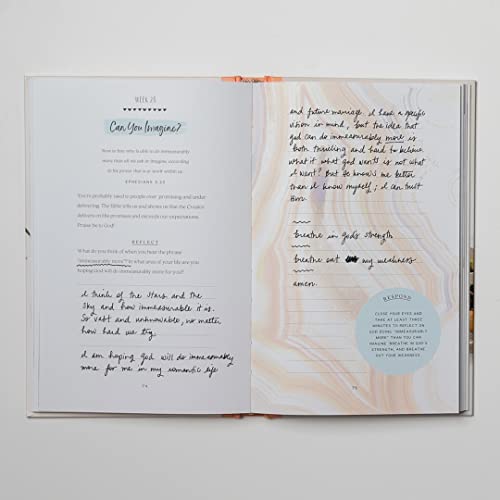 WEEK 28
Can You Imagine?
Now to him who is able to do immeasurably
more than all we ask or imagine, according
to his power that is at work within us.
EPHESIANS 3:20
You're probably used to people over promising and under
delivering. The Bible tells us and shows us that the Creator
delivers on His promises and exceeds our expectations.
Praise be to God!
REFLECT
What do you think of when you hear the phrase
"immeasurably more"? In what area of your life are you
hoping God will do immeasurably more for you?
I think of the stars and the
sky and how immeasurable it is.
So vast and unknowable, no matter
how hard we try.
I am hoping god will do immeasurably
more for me in my romantic life
74
and future marriage. I have a specific
vision in mind, but the idea that
god can do immeasurably more is
both thrilling and hard to believe.
What if what god wants is not what
I want? But he knows me better
than I know myself; I can trust
Him.
breathe in god's strength
breathe out my weakness
amen.
RESPOND
CLOSE YOUR EYES AND
TAKE AT LEAST THREE
MINUTES TO REFLECT ON
GOD DOING "IMMEASURABLY
MORE" THAN YOU CAN
IMAGINE. BREATHE IN GOD'S
STRENGTH, AND BREATHE
OUT YOUR WEAKNESS.
75